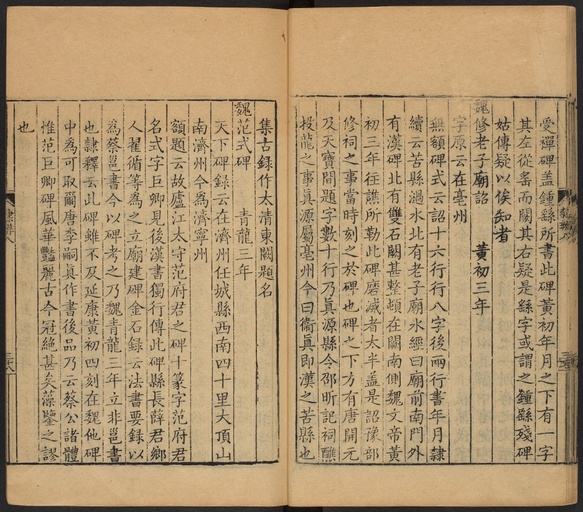 愛禪碑蓋鍾繇所書此碑黃初年月之下有一字
其左從䍃而闕其右疑是繇字或謂之鍾繇殘碑
姑傳疑以俟知者
魏修老子廟詔 黃初三年
字原云在亳州
無額碑式云詔十六行行八字後兩行書年月隸
續云苦縣過水北有老子廟水經曰廟前南門外
有漢碑北有雙石闕甚整頓在闕南側魏文帝黃
初三年往譙所勒此碑磨滅者太半盖是詔豫部
修祠之事當時刻之於碑也碑之下方有唐開元
及天寶間題字數十行乃真源縣令邵昕記祠醮
投龍之事真源屬亳州今曰衛真即漢之苦縣也
集古錄作太清東闕題名
魏范式碑 青龍三年
天下碑錄云在濟州任城縣西南四十里大頂山
南濟州今為濟寧州
額題云故廬江太守范府君之碑十篆字范府君
名式字巨卿見後漢書獨行傳此碑縣長薛君鄉
人翟循等為之立廟建碑金石錄云法書要錄以
為蔡邕書今以碑考之乃魏青龍三年立非邕書
也隸釋云此碑雖不及延康黃初四刻在魏他碑
中為可取爾唐李嗣真作書後品乃云蔡公諸體
惟范巨卿碑風華豔麗古今冠絶甚矣藻鑒之謬
也